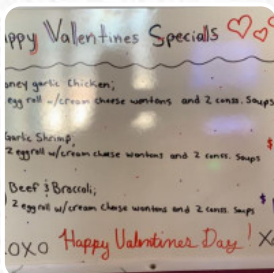 ppy Valentines Specials
oney garlic Chicken;
egg roll w/cream cheese wontons and 2 conss. Soups
Garlic Shrimp;
2 eggroll w/cream cheese wontons and 2 conss. Soups
$
Beef & Broccoli;
2 eggroll w/cream cheese wontons and 2 conss. Soups
$
OXO Happy Valentines Day! X